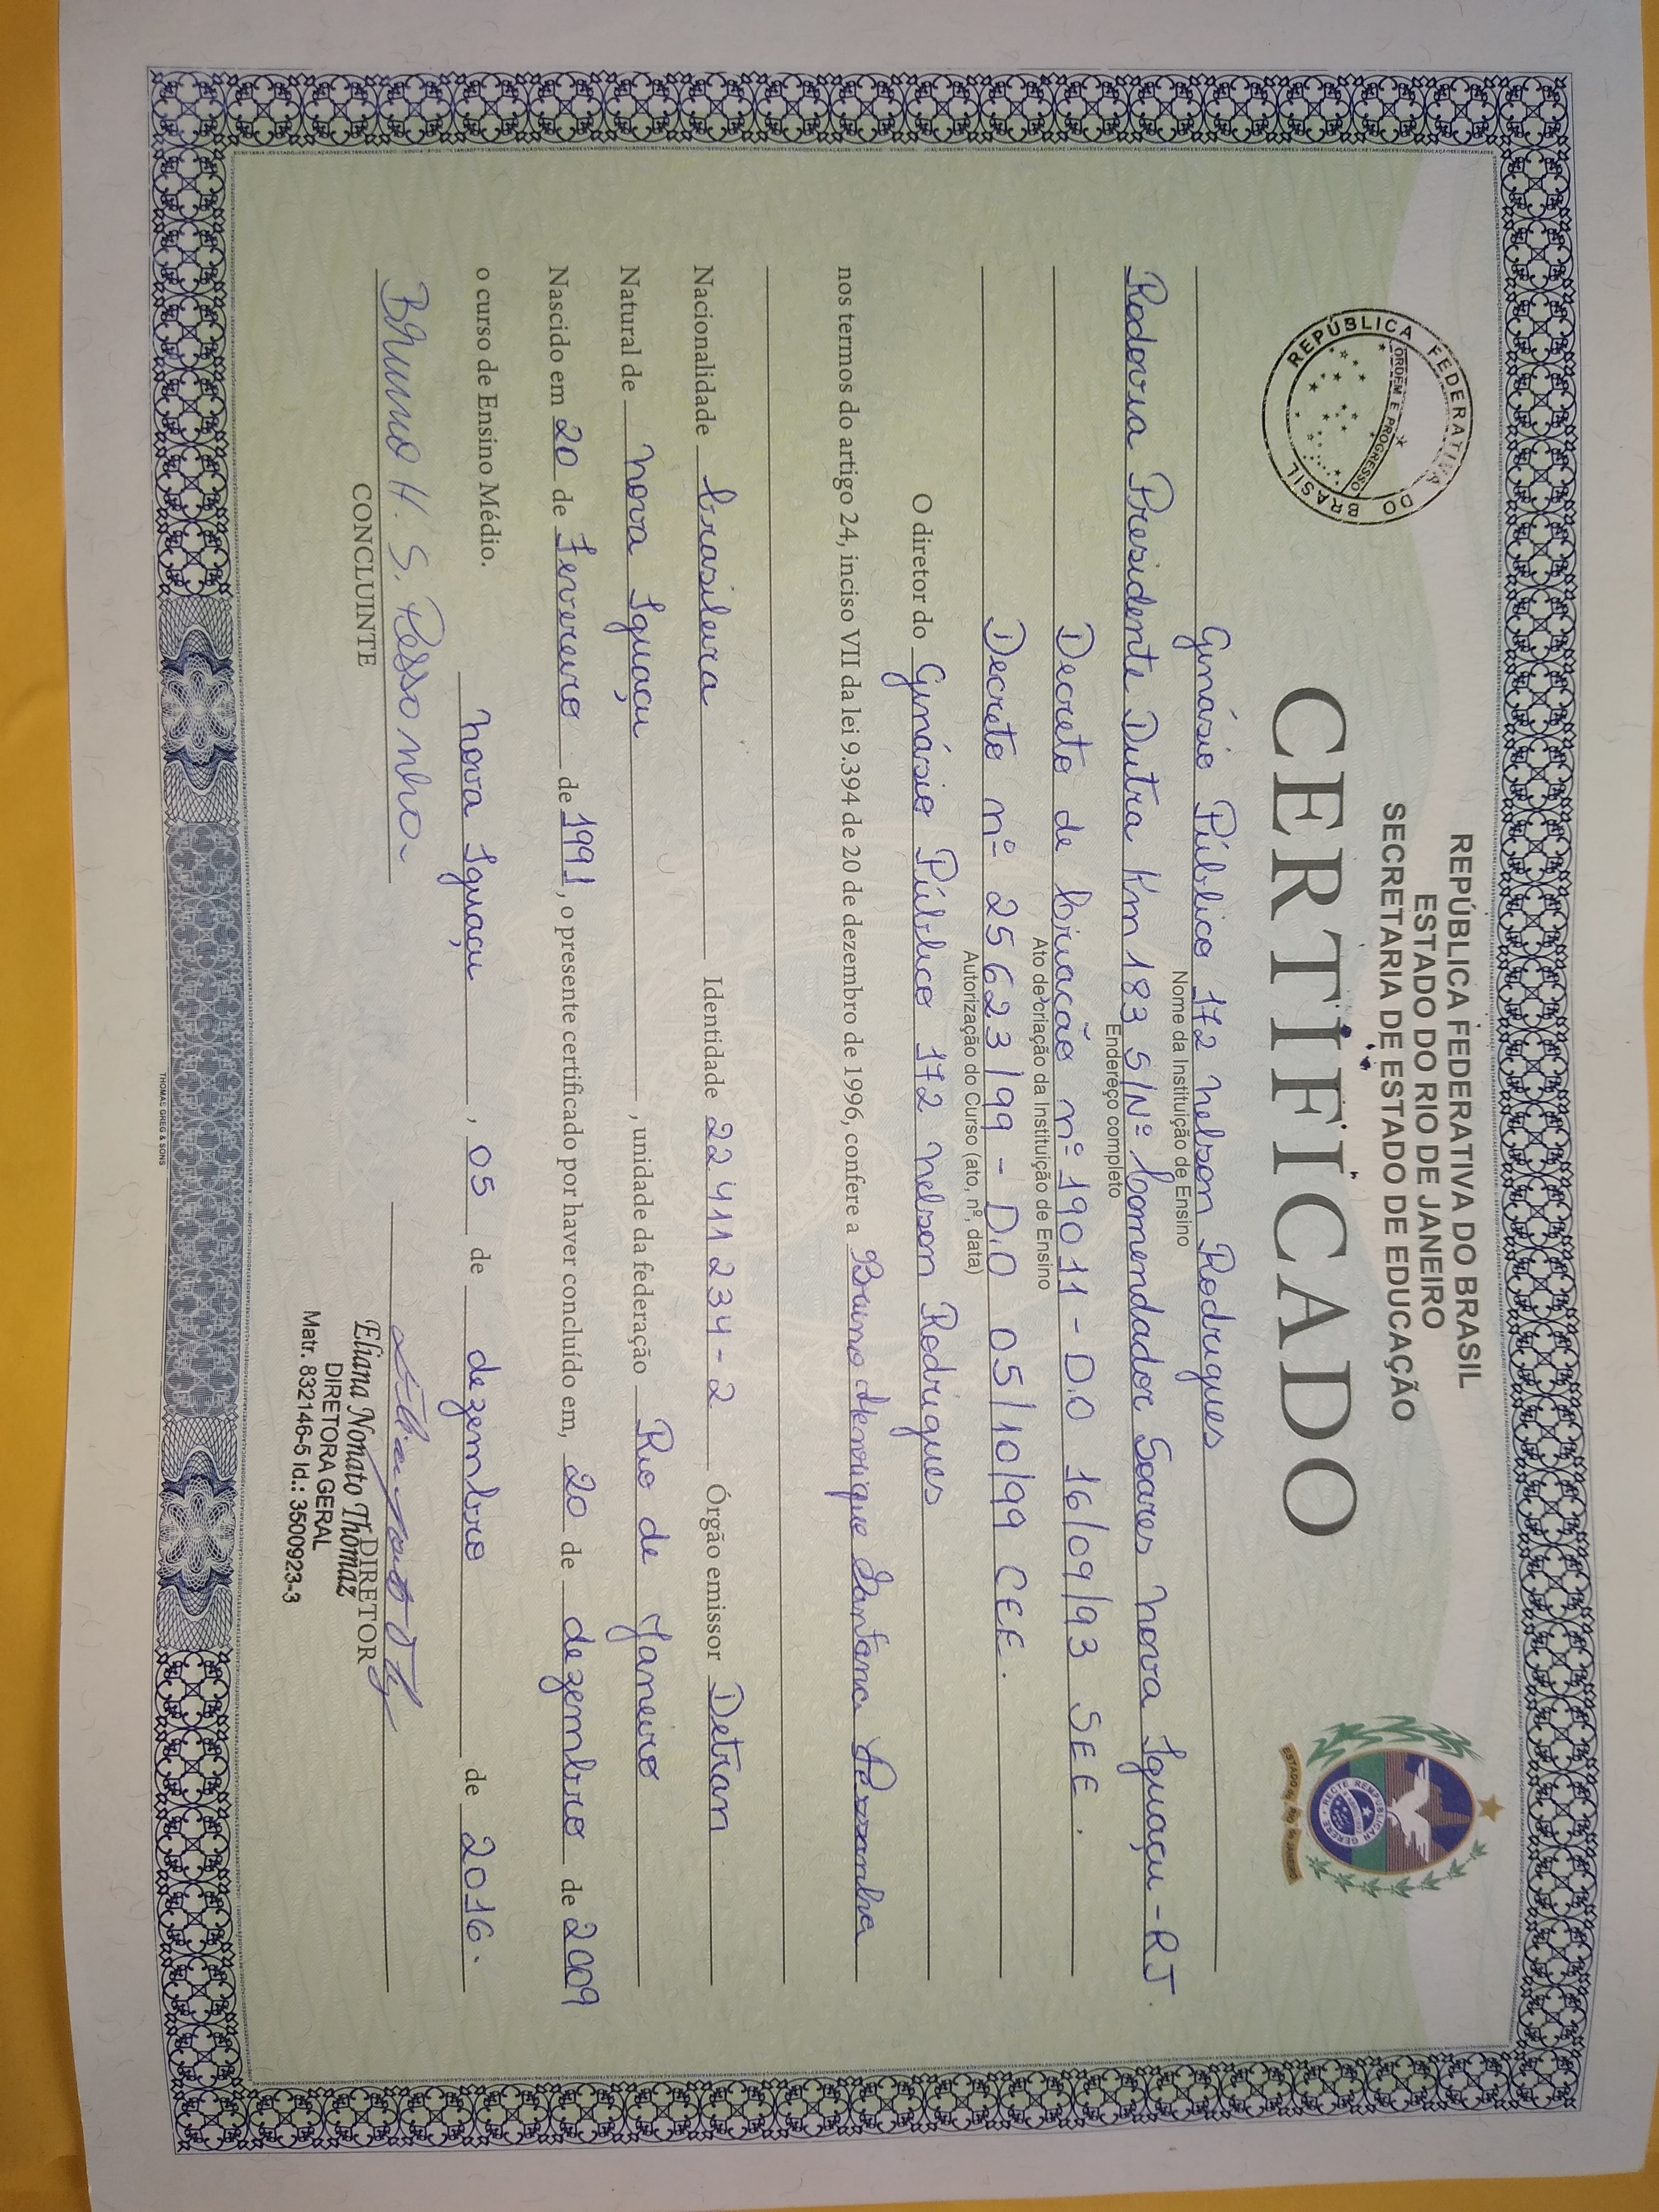 REPÚBLICA FEDERATIVA DO BRASIL
ORDEM E PROGRESSO
REPÚBLICA FEDERATIVA DO BRASIL
ESTADO DO RIO DE JANEIRO
SECRETARIA DE ESTADO DE EDUCAÇÃO
RECTE REMPUBLICAN GERERE
ESTADO DO RIO DE JANEIRO
CERTIFICADO
Ginásio Público 172 Nelson Rodrigues
Nome da Instituição de Ensino
Rodovia Presidente Dutra Km 183 S/Nº Comendador Soares Nova Iguaçu-RJ
Endereço completo
Decreto de Criação nº 19011 - D.O 16/09/93 SEE.
Ato de criação da Instituição de Ensino
Decreto nº 25623/99 - D.O 05/10/99 CEE.
Autorização do Curso (ato, nº, data)
O diretor do Ginásio Público 172 Nelson Rodrigues
nos termos do artigo 24, inciso VII da lei 9.394 de 20 de dezembro de 1996, confere a Bruno Henrique Santana Pessanha
Nacionalidade brasileira Identidade 22411234-2 Órgão emissor Detran
Natural de Nova Iguaçu, unidade da federação Rio de Janeiro
Nascido em 20 de Fevereiro de 1991, o presente certificado por haver concluído em, 20 de dezembro de 2009
o curso de Ensino Médio.
Nova Iguaçu, 05 de dezembro de 2016.
Bruno H. S. Pessanha
CONCLUINTE
DIRETOR
Eliana Nonato Thomaz
DIRETORA GERAL
Matr. 832146-5 Id.: 3500923-3
THOMAS GREG & SONS